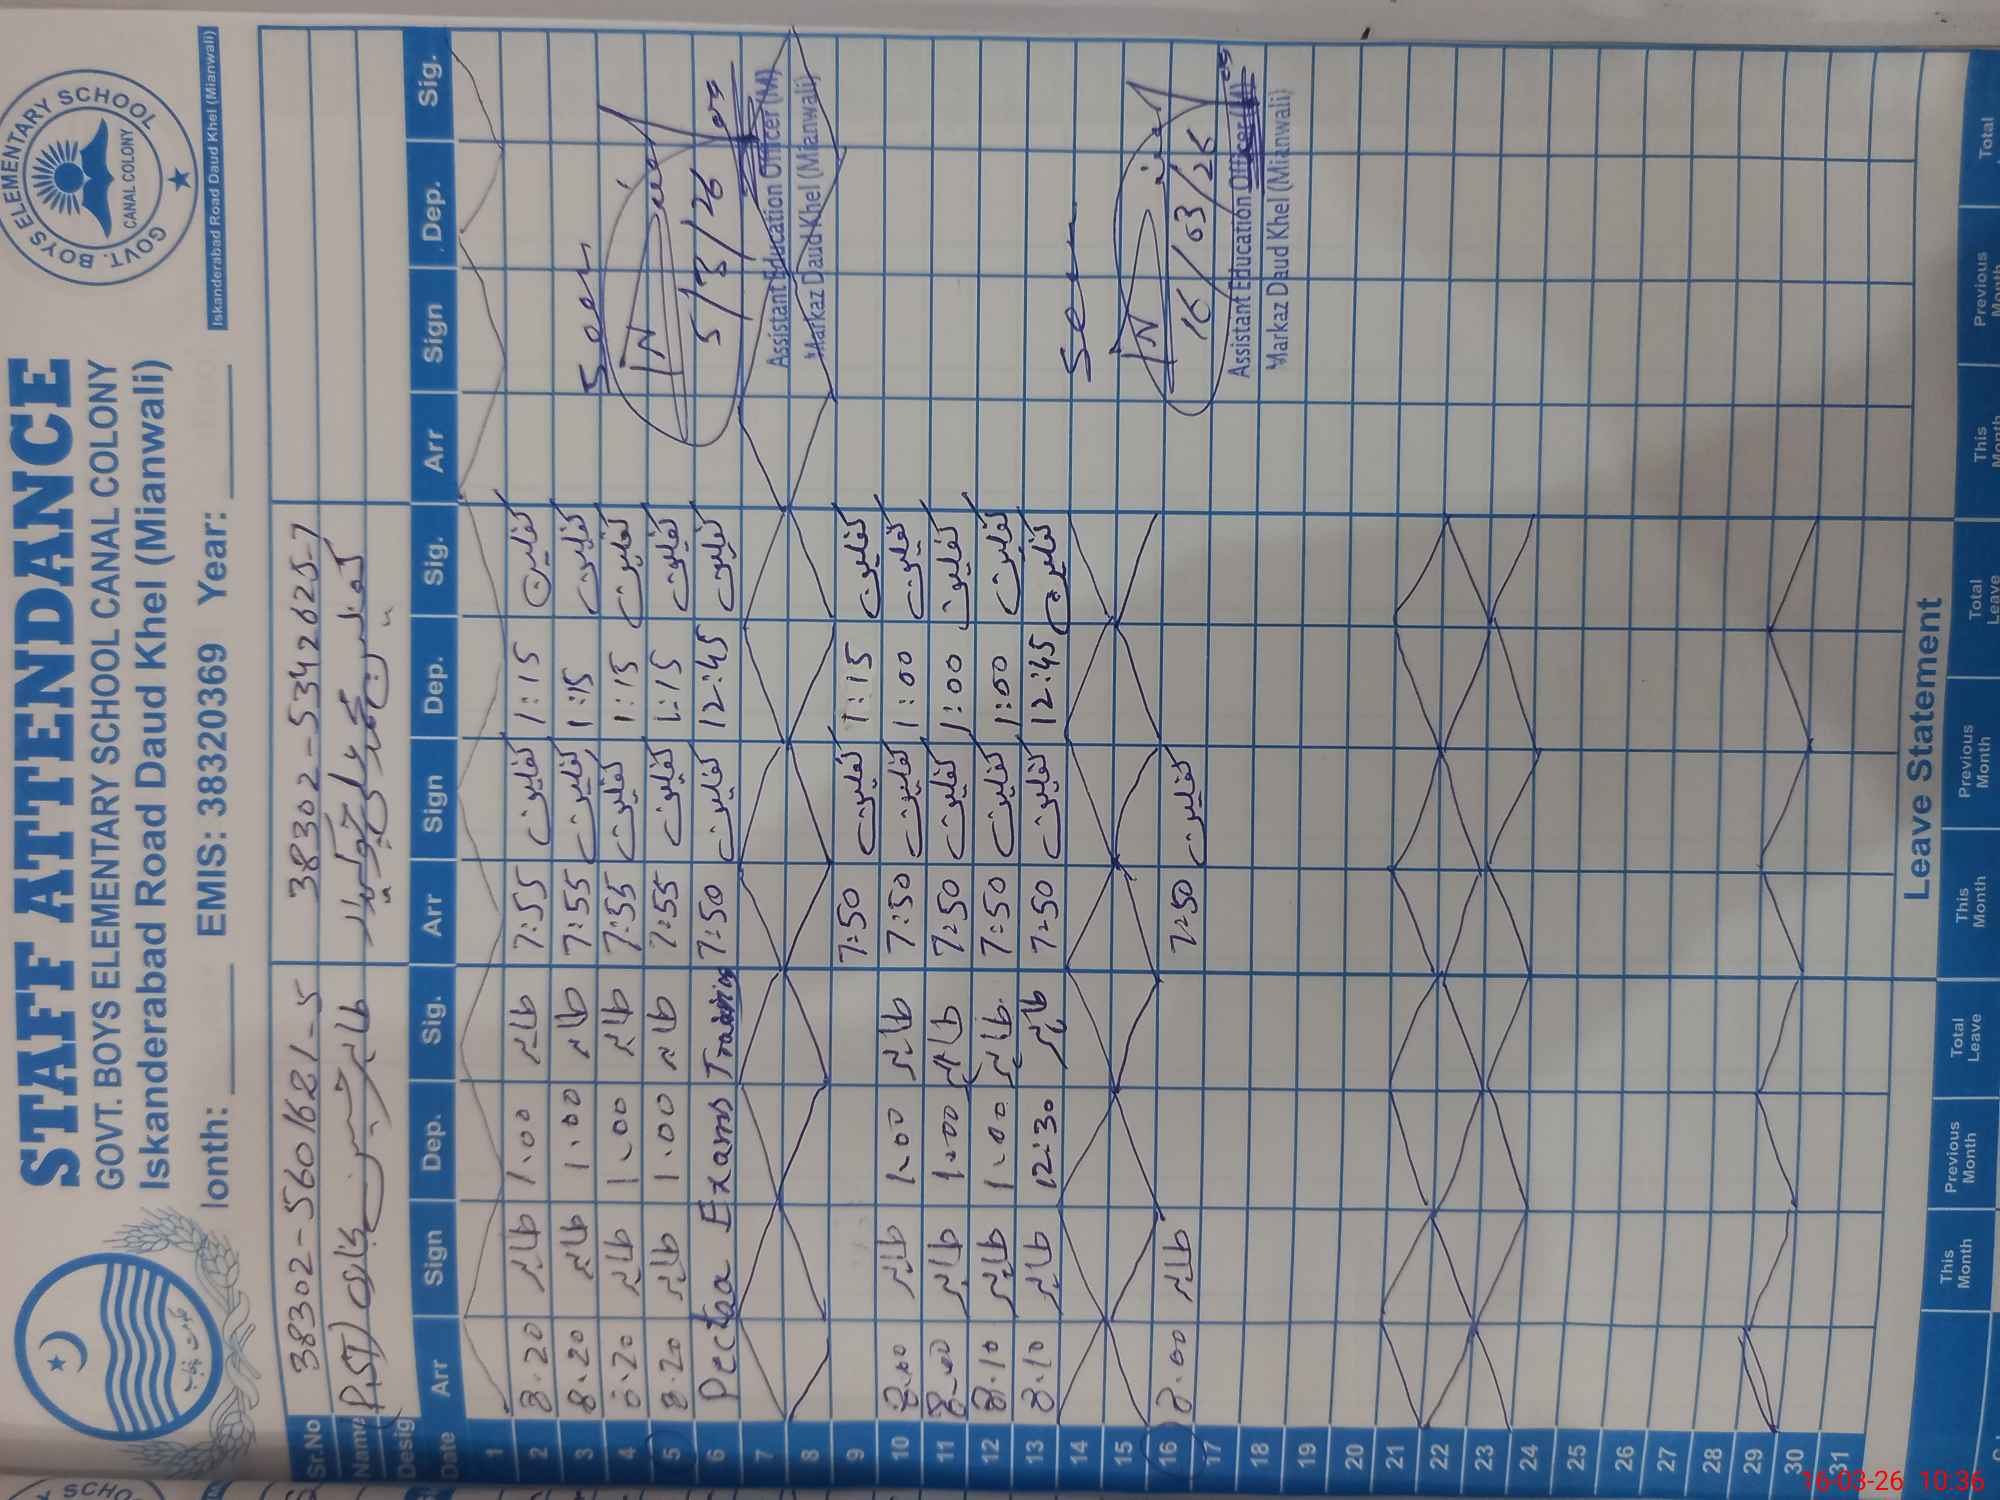 STAFF ATTENDANCE
GOVT. BOYS ELEMENTARY SCHOOL CANAL COLONY
Iskanderabad Road Daud Khel (Mianwali)
GOVT. BOYS ELEMENTARY SCHOOL
CANAL COLONY
Iskanderabad Road Daud Khel (Mianwali)
onth: EMIS: 38320369 Year:
Sr.No 38302-5601681-5 38302-5342625-7
Name (PST)
Desig
Date Arr Sign Dep. Sig. Arr Sign Dep. Sig. Arr Sign Dep. Sig.
1
2 8.20 طاہر 1.00 طاہر 7:55 ثقلین 1:15 ثقلین
3 8.20 طاہر 1.00 طاہر 7:55 ثقلین 1:15 ثقلین
4 8.20 طاہر 1.00 طاہر 7:55 ثقلین 1:15 ثقلین
5 8.20 طاہر 1.00 طاہر 7:55 ثقلین 1:15 ثقلین
6 Pectaa Exams Training 7:50 ثقلین 12:45 ثقلین
Seen
5/3/26
Assistant Education Officer (M)
Markaz Daud Khel (Mianwali)
7
8
9 7:50 ثقلین 1:15 ثقلین
10 8.00 طاہر 1.00 طاہر 7:50 ثقلین 1:00 ثقلین
11 8.00 طاہر 1.00 طاہر 7:50 ثقلین 1:00 ثقلین
12 8.10 طاہر 1.00 طاہر 7:50 ثقلین 1:00 ثقلین
13 8.10 طاہر 12:30 طاہر 7:50 ثقلین 12:45 ثقلین
14
15
16 8.00 طاہر 7:50 ثقلین
Seen
16/03/26
Assistant Education Officer (M)
Markaz Daud Khel (Mianwali)
17
18
19
20
21
22
23
24
25
26
27
28
29
30
31
Leave Statement
This Month Previous Month Total Leave This Month Previous Month Total Leave This Month Previous Month Total
16-03-26 10:36